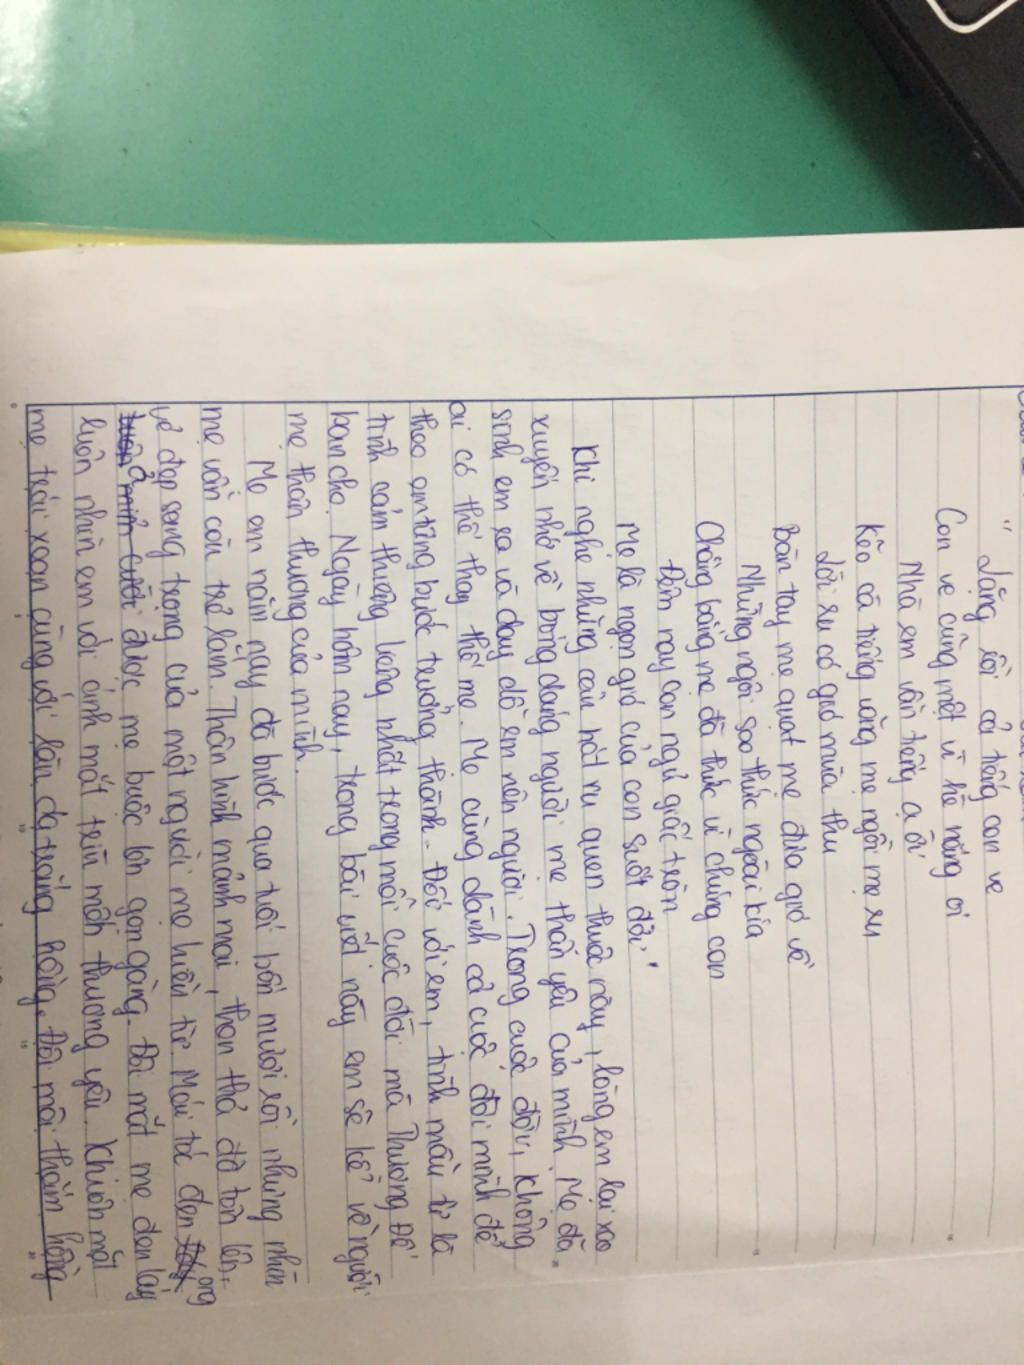 " Lặng rồi cả tiếng con ve
Con ve cũng mệt vì hè nắng oi
Nhà em vẫn tiếng ạ ời
Kẽo cà tiếng võng mẹ ngồi mẹ ru
Lời ru có gió mùa thu
Bàn tay mẹ quạt mẹ đưa gió về
Những ngôi sao thức ngoài kia
Chẳng bằng mẹ đã thức vì chúng con
Đêm nay con ngủ giấc tròn
Mẹ là ngọn gió của con suốt đời"
Khi nghe những câu hát ru quen thuộc này, lòng em lại xao
xuyến nhớ về bóng dáng người mẹ thân yêu của mình. Mẹ đã
sinh em ra và dạy dỗ em nên người. Trong cuộc đời, không
ai có thể thay thế mẹ. Mẹ cũng dành cả cuộc đời mình để
theo em từng bước trưởng thành. Đối với em, tình mẫu tử là
tình cảm thiêng liêng nhất trong mỗi cuộc đời mà Thượng Đế
ban cho. Ngày hôm nay, trong bài viết này em sẽ kể về người
mẹ thân thương của mình.
Mẹ em năm nay đã bước qua tuổi bốn mươi rồi nhưng nhìn
mẹ vẫn còn trẻ lắm. Thân hình mảnh mai, thon thả đã tôn lên
vẻ đẹp sang trọng của một người mẹ hiền từ. Mái tóc đen óng
ả được mẹ buộc lên gọn gàng. Đôi mắt mẹ đen láy
luôn nhìn em với ánh mắt trìu mến thương yêu. Khuôn mặt
mẹ trái xoan cùng với làn da trắng hồng. Đôi môi thắm hồng